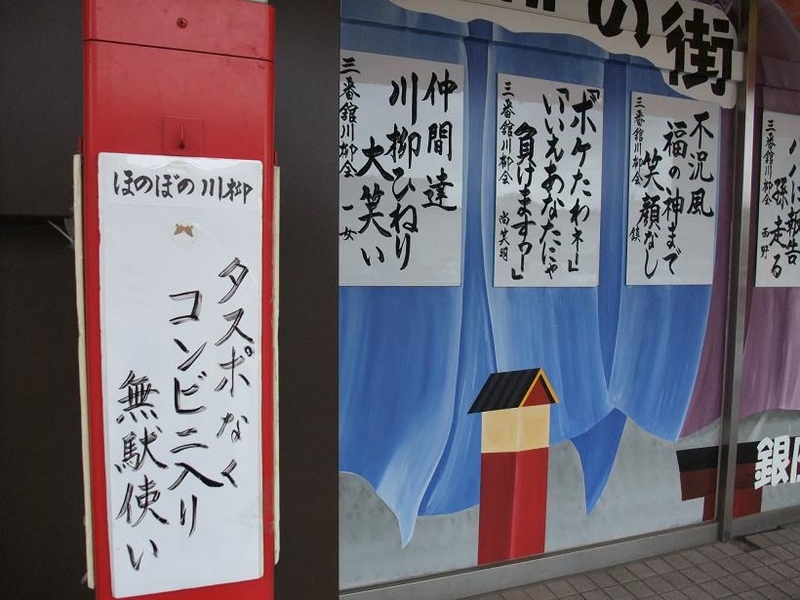 ほのぼの川柳
タスポなく
コンビニ入り
無駄使い
の街
仲間達
川柳ひねり
大笑い
三番館川柳会 一女
「ボケたわネー」
「いいえあなたにゃ
負けますワー」
三番館川柳会 尚笑
不況風
福の神まで
笑顔なし
三番館川柳会 鎮
に報告
孫走る
三番館川柳会 西野
銀